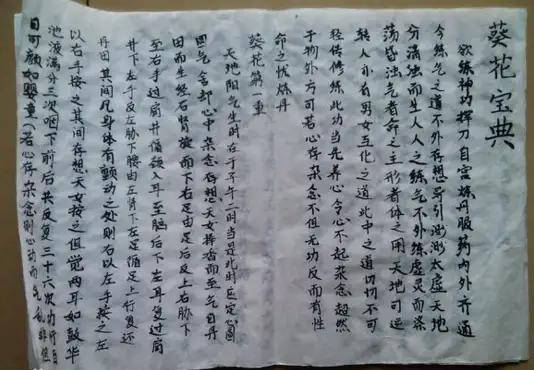 葵花宝典
欲练神功挥刀自宫炼丹服药内外齐通
今练气之道不外存想导引渺渺太虚天地
分清浊而生人人之练气不外练虚灵而涤
荡昏浊气者命之主形者体之用天地可逆
转人亦有男女互化之道此中之道切切不可
轻传修练此功当先养心令心不起杂念超然
于物外方可若心存杂念不但无功反而有性
命之忧炼丹
葵花第一重
天地阳气生时在于子午二时当是此时定心
气舍却心中杂念存想天女挥香而至气自丹
田而生经右肾旋而下右足由足后反上右胁下
至右手过肩井循颈入耳至脑后下左耳复过肩
井下左手反左胁下腰由左肾下左足循足上行复还
丹田其间凡身体有颤动之处则右以左手按之左
以右手按之其间存想天女按之但觉两耳如鼓华
池液满分三次咽下前后共反复三十六次功行百
日可颜如婴童(若心存杂念则心动而气乱非但